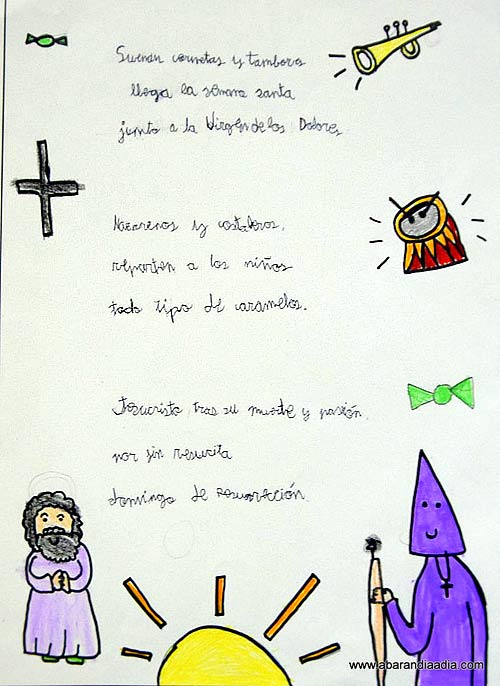 Suenan cornetas y tambores
llega la semana santa
junto a la Virgen de los Dolores
Nazarenos y costaleros,
reparten a los niños
todo tipo de caramelos.
Jesucristo tras su muerte y pasión,
por fin resucita
domingo de resurrección.
www.abarandiaadia.com